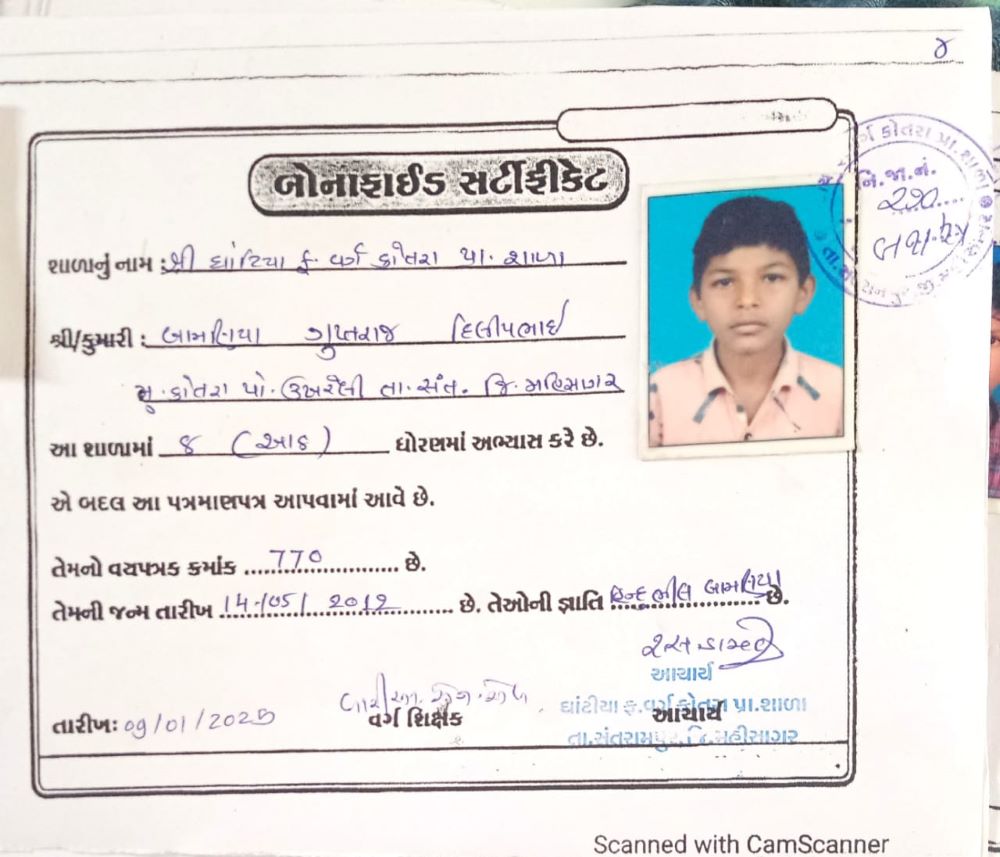 ૪
બોનાફાઈડ સર્ટીફીકેટ
શાળાનું નામ : શ્રી ઘાંટિયા ફ. વર્ગ કોતરા પ્રા. શાળા
શ્રી/કુમારી : બામણિયા ગુપ્તરાજ દિલીપભાઈ
મુ. કોતરા પો. ઉખરેલી તા. સંત. જિ. મહિસાગર
આ શાળામાં ૮ (આઠ) ધોરણમાં અભ્યાસ કરે છે.
એ બદલ આ પત્રમાણપત્ર આપવામાં આવે છે.
તેમનો વયપત્રક ક્રમાંક 770 છે.
તેમની જન્મ તારીખ 14/05/2012 છે. તેઓની જ્ઞાતિ હિન્દુ ભીલ બામણિયા છે.
આચાર્ય
તારીખઃ 09/01/2025 વર્ગ શિક્ષક આચાર્ય
ઘાંટીયા ફ.વર્ગ કોતરા પ્રા.શાળા
તા.સંતરામપુર, જિ.મહીસાગર
વર્ગ કોતરા પ્રા. શાળા
નિ.જા.નં.
Scanned with CamScanner